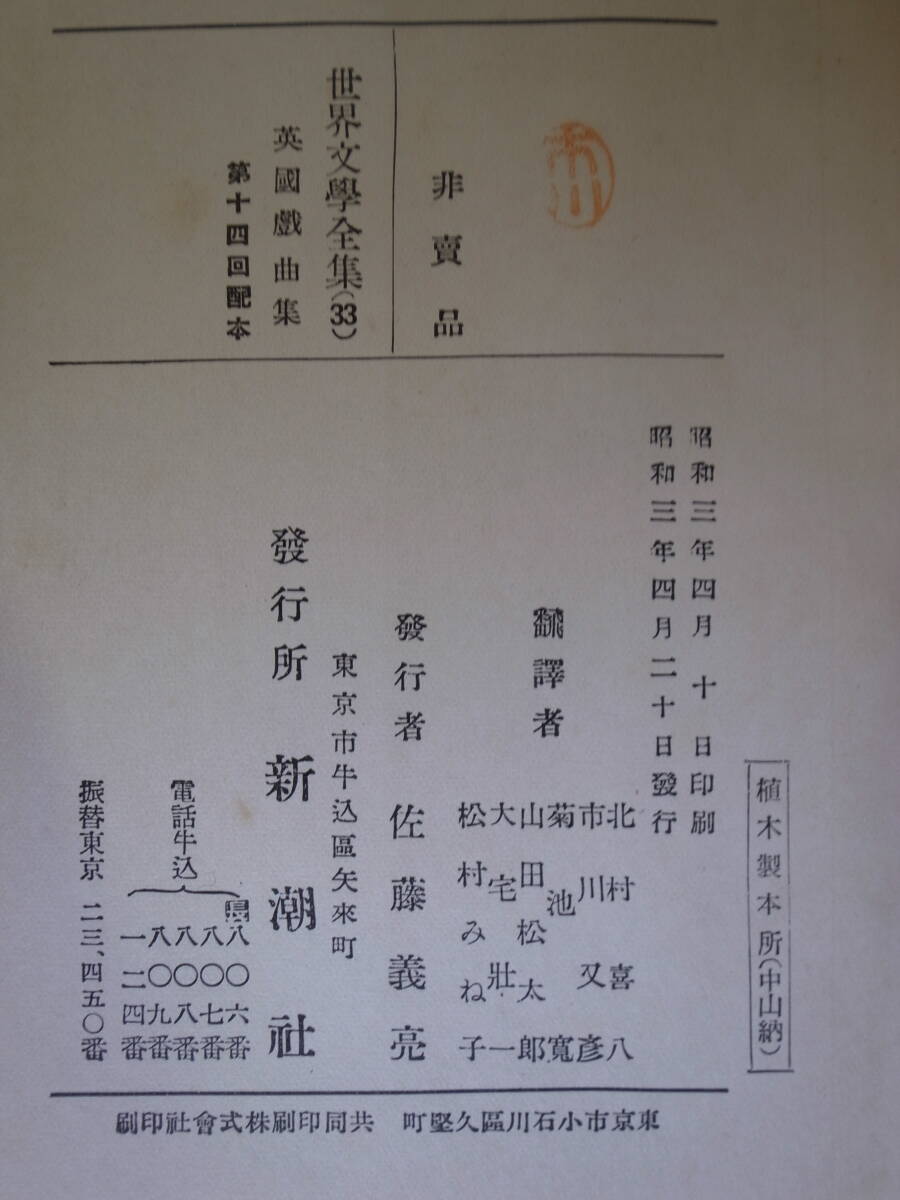 非賣品
世界文學全集(33)
英國戲曲集
第十四回配本
植木製本所(中山納)
昭和三年四月十日印刷
昭和三年四月二十日發行
飜譯者
北村喜八
市川又彥
菊池寬
山田松太郎
大宅壯一
松村みね子
發行者 佐藤義亮
東京市牛込區矢來町
發行所 新潮社
電話牛込
長八〇六番
八〇七番
八〇八番
八〇九番
一二四番
振替東京 二三、四五〇番
東京市小石川區久堅町 共同印刷株式會社印刷